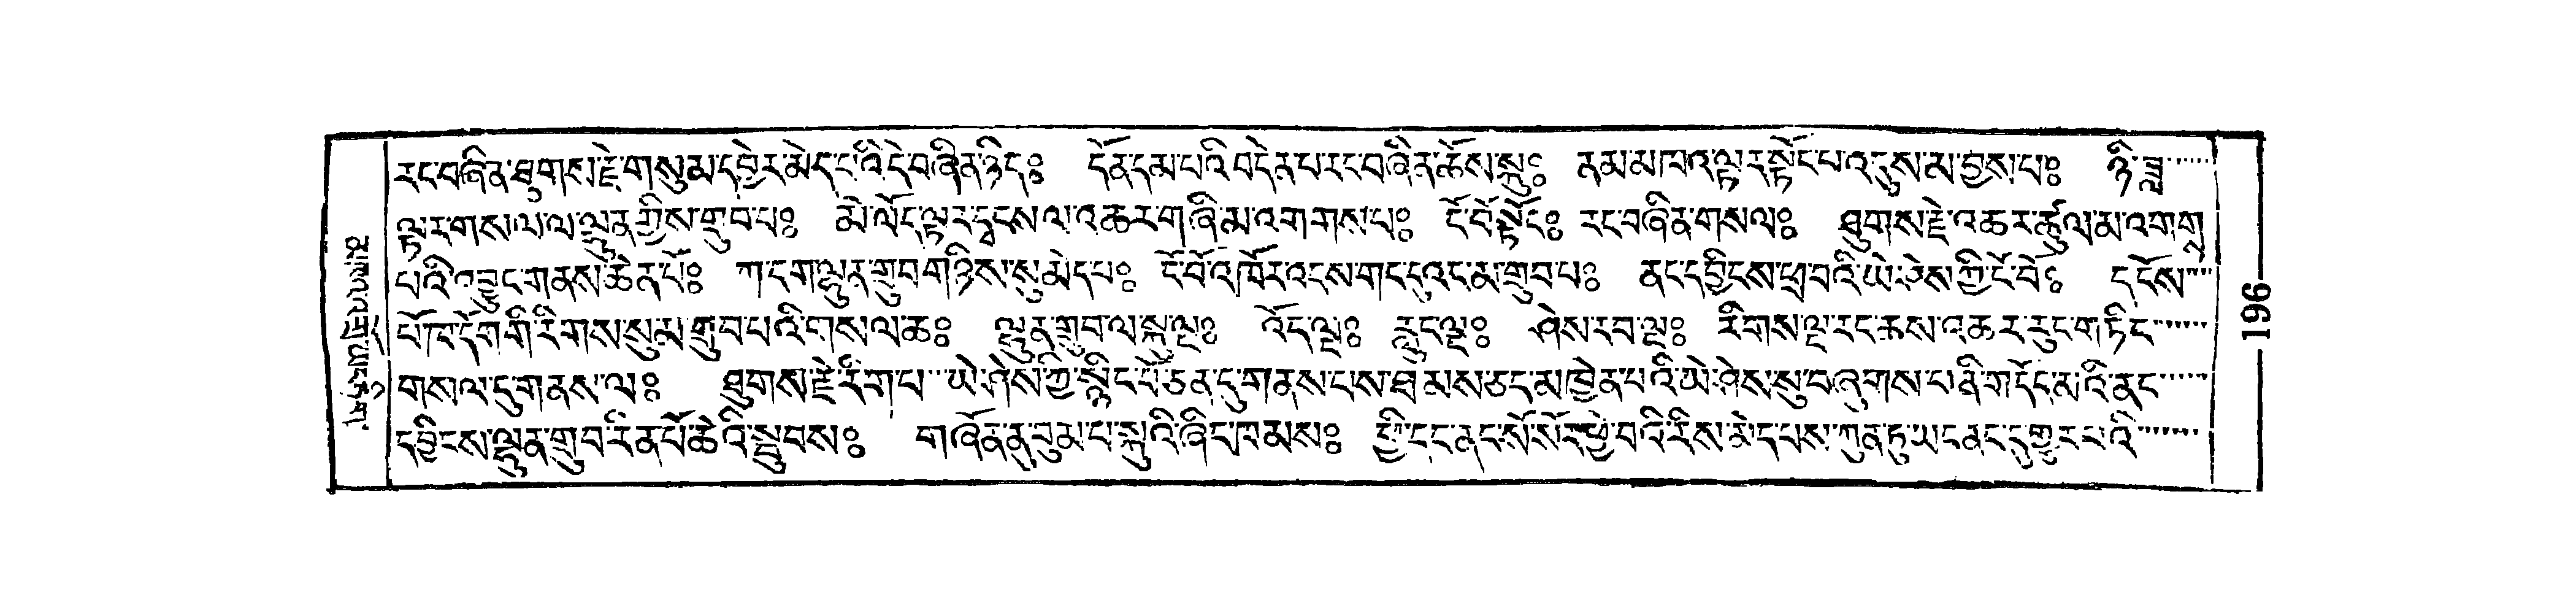 རང་བཞིན་ཐུགས་རྗེ་གསུམ་དབྱེར་མེད་པའི་དེ་བཞིན་ཉིད༔ དོན་དམ་པའི་བདེན་པ་རང་བཞིན་ཆོས་སྐུ༔ ནམ་མཁའ་ལྟར་སྟོང་པ་འདུས་མ་བྱས་པ༔ ཉི་ཟླ
ལྟར་གསལ་ལ་ལྷུན་གྱིས་གྲུབ་པ༔ མེ་ལོང་ལྟར་དྭངས་ལ་འཆར་གཞི་མ་འགགས་པ༔ ངོ་བོ་སྟོང༔ རང་བཞིན་གསལ༔ ཐུགས་རྗེ་འཆར་ཚུལ་མ་འགག
པའི་འབྱུང་གནས་ཆེན་པོ༔ ཀ་དག་ལྷུན་གྲུབ་གཉིས་སུ་མེད་པ༔ ངོ་བོ་འཁོར་འདས་གང་དུའང་མ་གྲུབ་པ༔ ནང་དབྱིངས་ཕྲ་བའི་ཡེ་ཤེས་ཀྱི་ངོ་བོ༔ དངོས
པོ་ཁ་དོག་གི་རིགས་སུ་མ་གྲུབ་པའི་གསལ་ཆ༔ ལྷུན་གྲུབ་ལ་སྐུ་ལྔ༔ འོད་ལྔ༔ རླུང་ལྔ༔ ཤེས་རབ་ལྔ༔ རིགས་ལྔ་རང་ཆས་འཆར་རུང་གཏིང
གསལ་དུ་གནས་ལ༔ ཐུགས་རྗེ་རིག་པ་ཡེ་ཤེས་ཀྱི་སྙིང་པོ་ཅན་དུ་གནས་པས་ཐམས་ཅད་མཁྱེན་པའི་ཡེ་ཤེས་སུ་བཞུགས་པ་ནི་གདོད་མའི་ནང
དབྱིངས་ལྷུན་གྲུབ་རིན་པོ་ཆེའི་སྦུབས༔ གཞོན་ནུ་བུམ་པ་སྐུའི་ཞིང་ཁམས༔ ཕྱི་དང་ནང་སོ་སོར་ཕྱེ་བའི་རིས་མེད་པས་ཀུན་ཏུ་ཡང་ནང་དུ་གྱུར་པའི
196